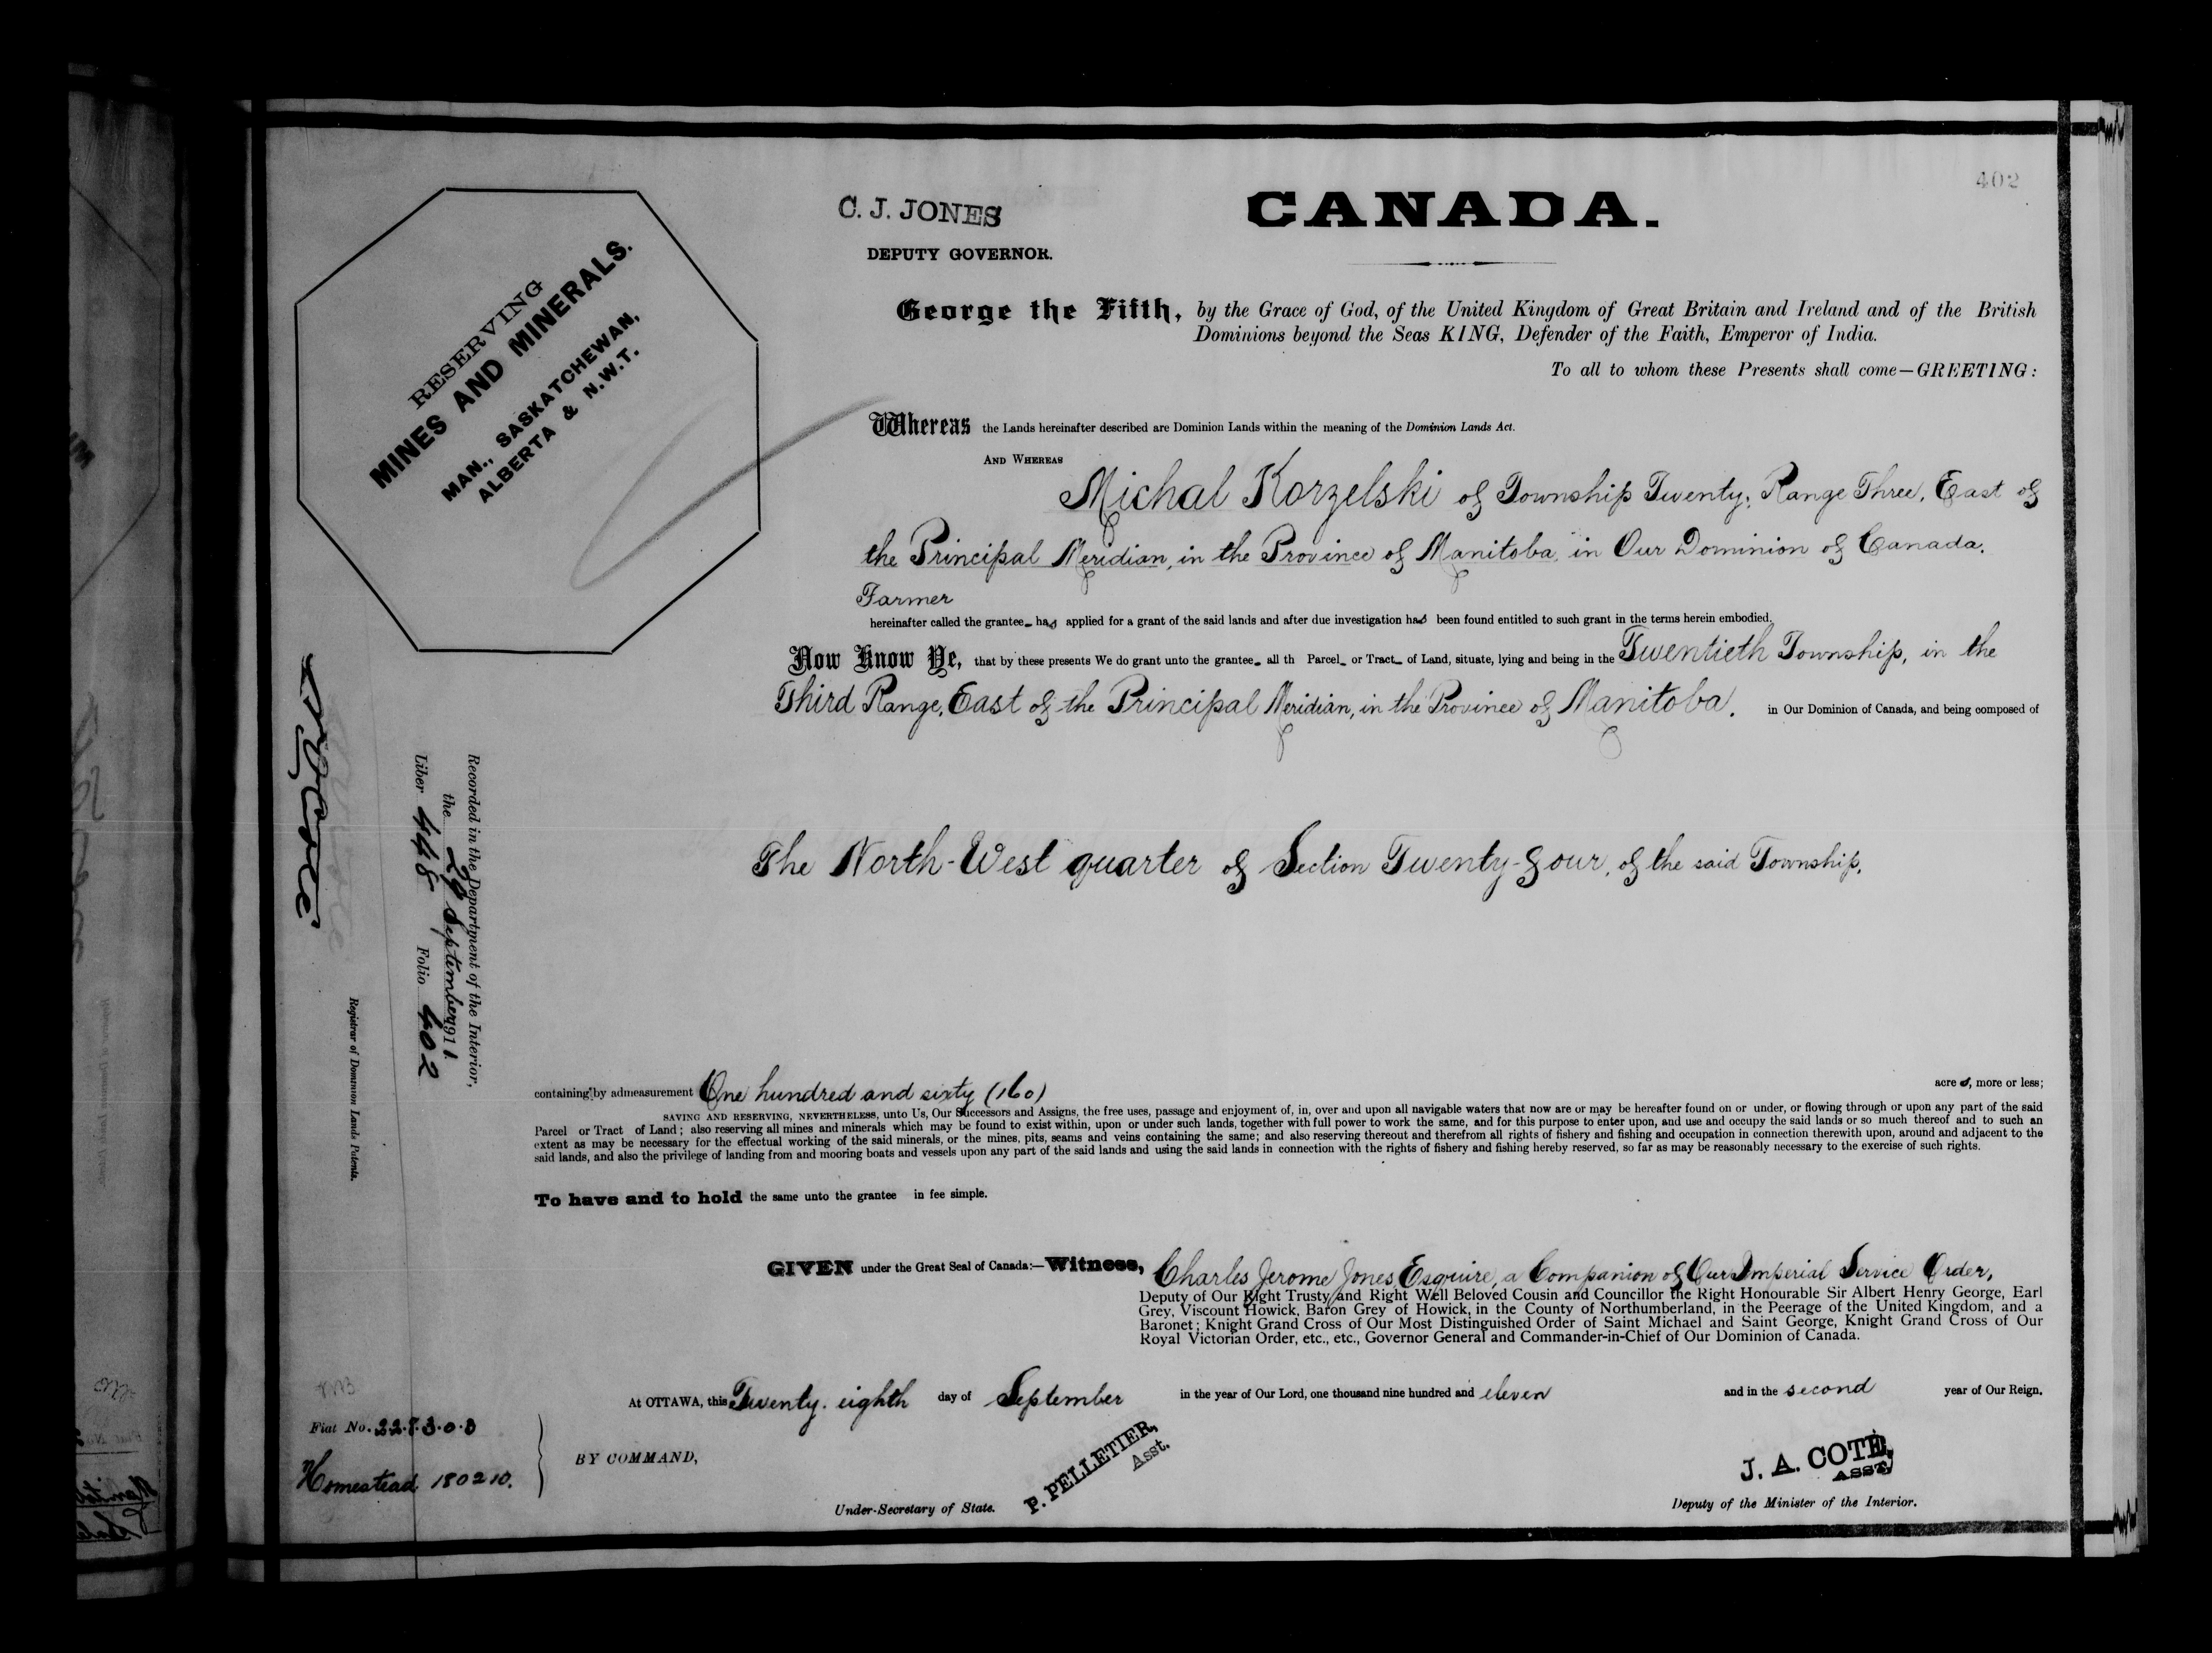 402
C. J. JONES
DEPUTY GOVERNOR.
CANADA.
RESERVING
MINES AND MINERALS.
MAN., SASKATCHEWAN,
ALBERTA & N.W.T.
George the Fifth, by the Grace of God, of the United Kingdom of Great Britain and Ireland and of the British
Dominions beyond the Seas KING, Defender of the Faith, Emperor of India.
To all to whom these Presents shall come—GREETING:
Whereas the Lands hereinafter described are Dominion Lands within the meaning of the Dominion Lands Act.
AND WHEREAS
Michal Korzelski of Township Twenty, Range Three, East of
the Principal Meridian, in the Province of Manitoba, in Our Dominion of Canada,
Farmer
hereinafter called the grantee has applied for a grant of the said lands and after due investigation has been found entitled to such grant in the terms herein embodied.
Now Know Ye, that by these presents We do grant unto the grantee all th Parcel or Tract of Land, situate, lying and being in the Twentieth Township, in the
Third Range, East of the Principal Meridian, in the Province of Manitoba, in Our Dominion of Canada, and being composed of
The North-West quarter of Section Twenty-four, of the said Township,
containing by admeasurement One hundred and sixty (160) acres, more or less;
SAVING AND RESERVING, NEVERTHELESS, unto Us, Our Successors and Assigns, the free uses, passage and enjoyment of, in, over and upon all navigable waters that now are or may be hereafter found on or under, or flowing through or upon any part of the said
Parcel or Tract of Land; also reserving all mines and minerals which may be found to exist within, upon or under such lands, together with full power to work the same, and for this purpose to enter upon, and use and occupy the said lands or so much thereof and to such an
extent as may be necessary for the effectual working of the said minerals, or the mines, pits, seams and veins containing the same; and also reserving thereout and therefrom all rights of fishery and fishing and occupation in connection therewith upon, around and adjacent to the
said lands, and also the privilege of landing from and mooring boats and vessels upon any part of the said lands and using the said lands in connection with the rights of fishery and fishing hereby reserved, so far as may be reasonably necessary to the exercise of such rights.
To have and to hold the same unto the grantee in fee simple.
GIVEN under the Great Seal of Canada:—Witness, Charles Jerome Jones, Esquire, a Companion of Our Imperial Service Order,
Deputy of Our Right Trusty and Right Well Beloved Cousin and Councillor the Right Honourable Sir Albert Henry George, Earl
Grey, Viscount Howick, Baron Grey of Howick, in the County of Northumberland, in the Peerage of the United Kingdom, and a
Baronet; Knight Grand Cross of Our Most Distinguished Order of Saint Michael and Saint George, Knight Grand Cross of Our
Royal Victorian Order, etc., etc., Governor General and Commander-in-Chief of Our Dominion of Canada.
At OTTAWA, this Twenty-eighth day of September in the year of Our Lord, one thousand nine hundred and eleven and in the second year of Our Reign.
BY COMMAND,
P. PELLETIER,
Asst.
Under-Secretary of State.
J. A. COTÉ,
ASST.
Deputy of the Minister of the Interior.
Recorded in the Department of the Interior,
the 29 September 1911.
Liber 448 Folio 402
Registrar of Dominion Lands Patents.
Fiat No.
Homestead 180210.